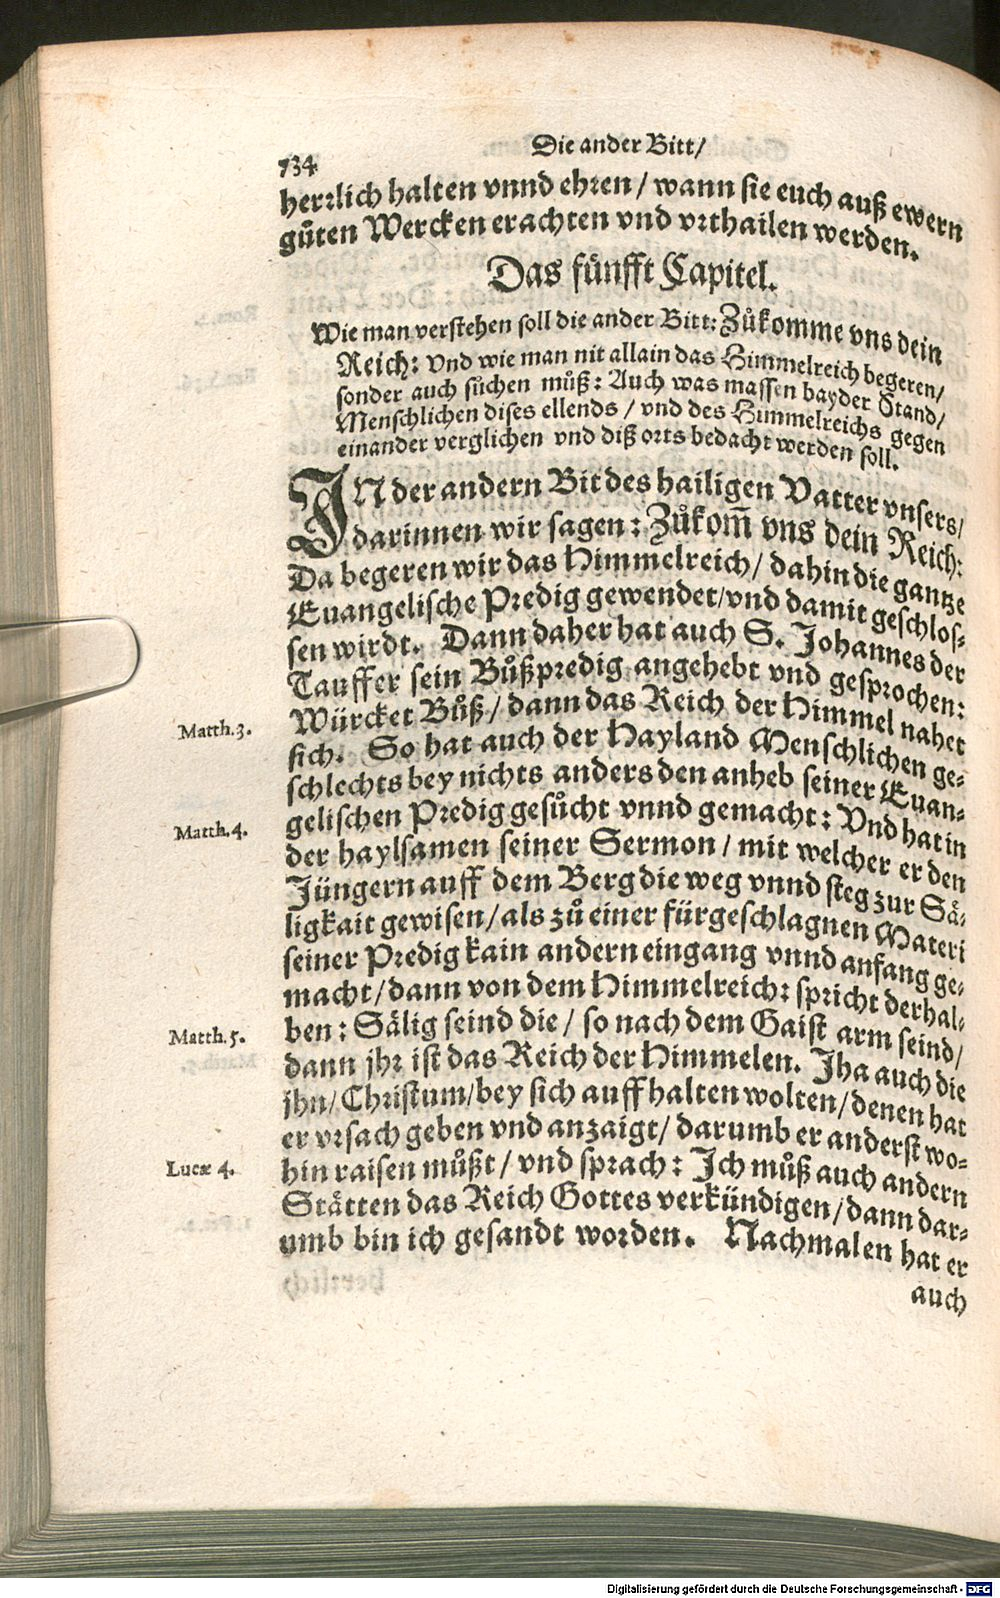 734 Die ander Bitt/
herrlich halten vnnd ehren / wann sie euch auß ewern
gůten Wercken erachten vnd vrthailen werden.
Das fünfft Capitel.
Wie man verstehen soll die ander Bitt: Zůkomme vns dein
Reich: Vnd wie man nit allain das Himmelreich begeren/
sonder auch sůchen můß: Auch was massen bayder Stand/
Menschlichen dises ellends / vnd des Himmelreichs gegen
einander verglichen vnd diß orts bedacht werden soll.
IN der andern Bit des hailigen Vatter vnsers/
darinnen wir sagen: Zůkom̃ vns dein Reich:
Da begeren wir das Himmelreich/ dahin die gantze
Euangelische Predig gewendet/vnd damit geschlos-
sen wirdt. Dann daher hat auch S. Johannes der
Tauffer sein Bůßpredig angehebt vnd gesprochen:
Matth.3. Würcket Bůß/ dann das Reich der Himmel nahet
sich. So hat auch der Hayland Menschlichen ge-
schlechts bey nichts anders den anheb seiner Euan-
Matth.4. gelischen Predig gesůcht vnnd gemacht: Vnd hat in
der haylsamen seiner Sermon / mit welcher er den
Jüngern auff dem Berg die weg vnnd steg zur Sä-
ligkait gewisen/als zů einer fürgeschlagnen Materi
seiner Predig kain andern eingang vnnd anfang ge-
macht/dann von dem Himmelreich: spricht derhal-
Matth.5. ben: Sälig seind die / so nach dem Gaist arm seind/
dann jhr ist das Reich der Himmelen. Jha auch die
jhn/Christum/bey sich auffhalten wolten/denen hat
er vrsach geben vnd anzaigt/ darumb er anderst wo-
Lucæ 4. hin raisen můßt / vnd sprach: Ich můß auch andern
Stätten das Reich Gottes verkündigen/dann dar-
umb bin ich gesandt worden. Nachmalen hat er
auch
Digitalisierung gefördert durch die Deutsche Forschungsgemeinschaft - DFG